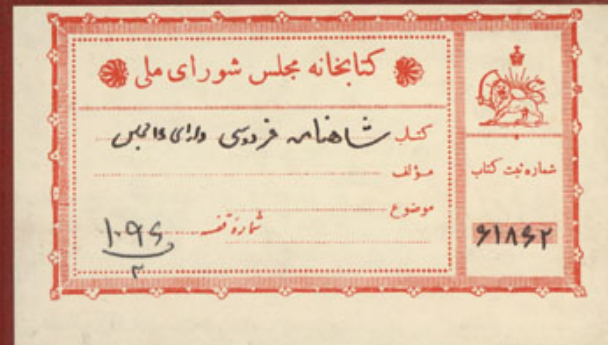 کتابخانه مجلس شورای ملی
کتاب شاهنامه فردوسی دارای ۵۵ مجلس
مؤلف
موضوع
شمارهٔ قفسه
۱۰۹۶
۲
شماره ثبت کتاب
۶۱۸۶۲